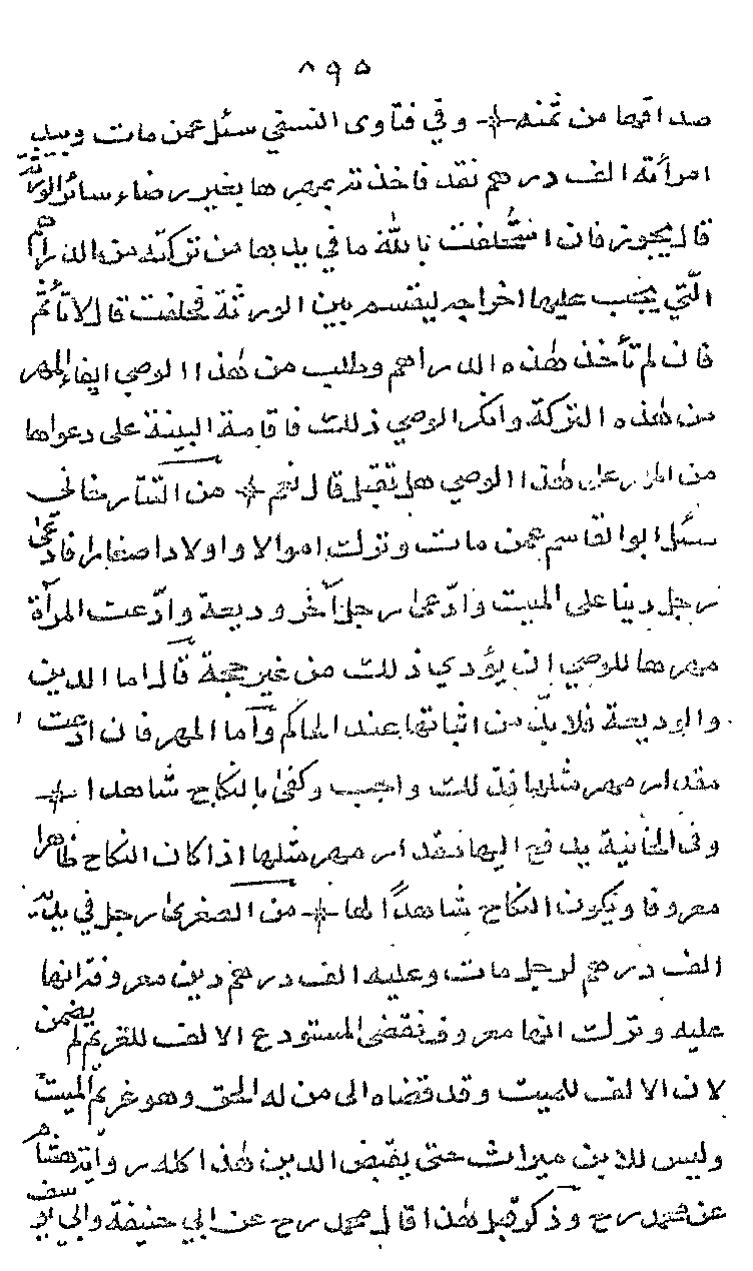 ٨٩٥
صداقها من ثمنه وفي فتاوى النسفي سئل عمن مات وبيد
امرأته الف درهم نقد فاخذته بمهرها بغير رضاء سائر الورثة
قال يجوز فان استحلفت بالله ما في يدها من تركته من الدراهم
التي يجب عليها اخراجه ليقسم بين الورثة فحلفت قال لا تأثم
فان لم تأخذ هذه الدراهم وطلب من هذا الوصي ايفاء المهر
من هذه التركة وانكر الوصي ذلك فاقامة البينة على دعواها
من المهر على هذا الوصي هل تقبل قال نعم من التتارخاني
سئل ابو القاسم عمن مات وترك اموالا واولادا صغارا فادعى
رجل دينا على الميت وادّعى رجل آخر وديعة وادّعت المرأة
مهرها للوصي ان يؤدي ذلك من غير حجة قال اما الدين
والوديعة فلا بدّ من اثباتها عند الحاكم وأما المهر فان ادعت
مقدار مهر مثلها فذلك واجب وكفى بالنكاح شاهدا
وفى الخانية يدفع اليها مقدار مهر مثلها اذا كان النكاح ظاهرا
معروفا ويكون النكاح شاهدًا لها من الصغرى رجل في يده
الف درهم لرجل مات وعليه الف درهم دين معروف انها
عليه وترك انها معروف فقضى المستودع الالف للغريم لم يضمن
لان الالف للميت وقد قضاه الى من له الحق وهو غريم الميت
وليس للابن ميراث حتى يقبض الدين هذا كله رواية هشام
عن محمد رح وذكر قبل هذا قال محمد رح عن ابي حنيفة وابي يوسف